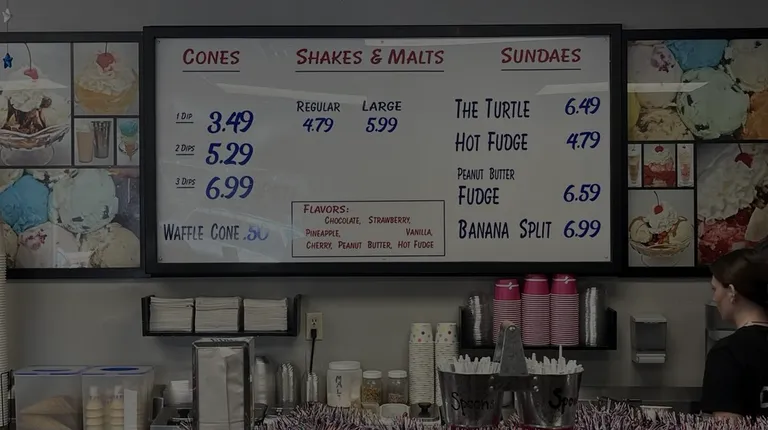 CONES
1 DIP 3.49
2 DIPS 5.29
3 DIPS 6.99
WAFFLE CONE .50
SHAKES & MALTS
REGULAR LARGE
4.79 5.99
FLAVORS:
CHOCOLATE, STRAWBERRY,
PINEAPPLE, VANILLA,
CHERRY, PEANUT BUTTER, HOT FUDGE
SUNDAES
THE TURTLE 6.49
HOT FUDGE 4.79
PEANUT BUTTER
FUDGE 6.59
BANANA SPLIT 6.99
MALT
Spoons
Spo